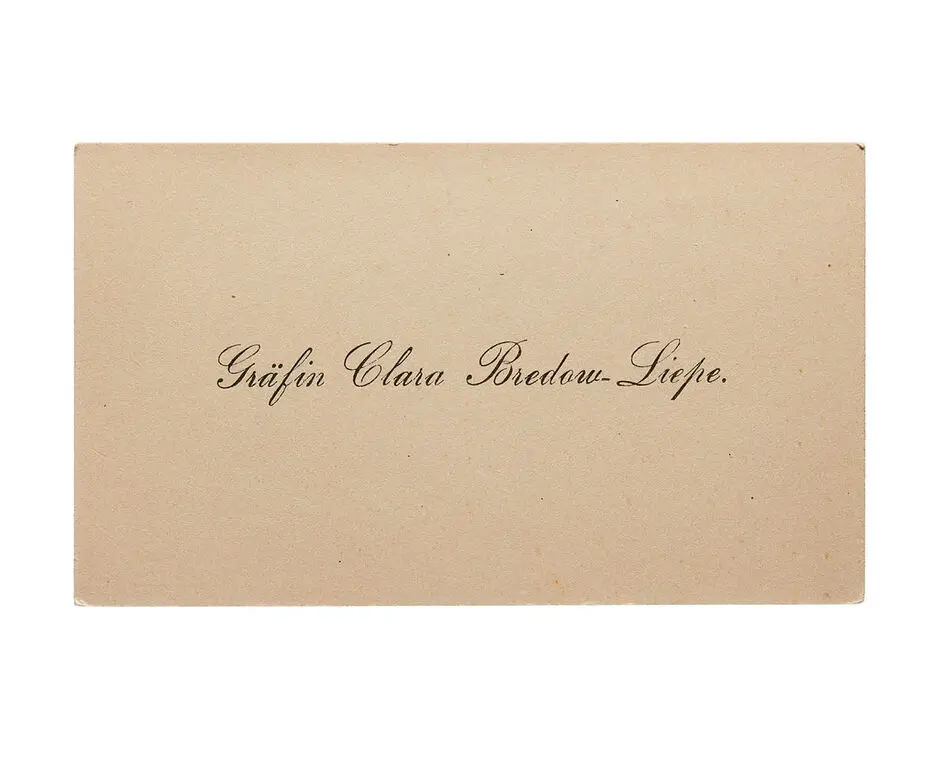 Gräfin Clara Bredow-Liepe.